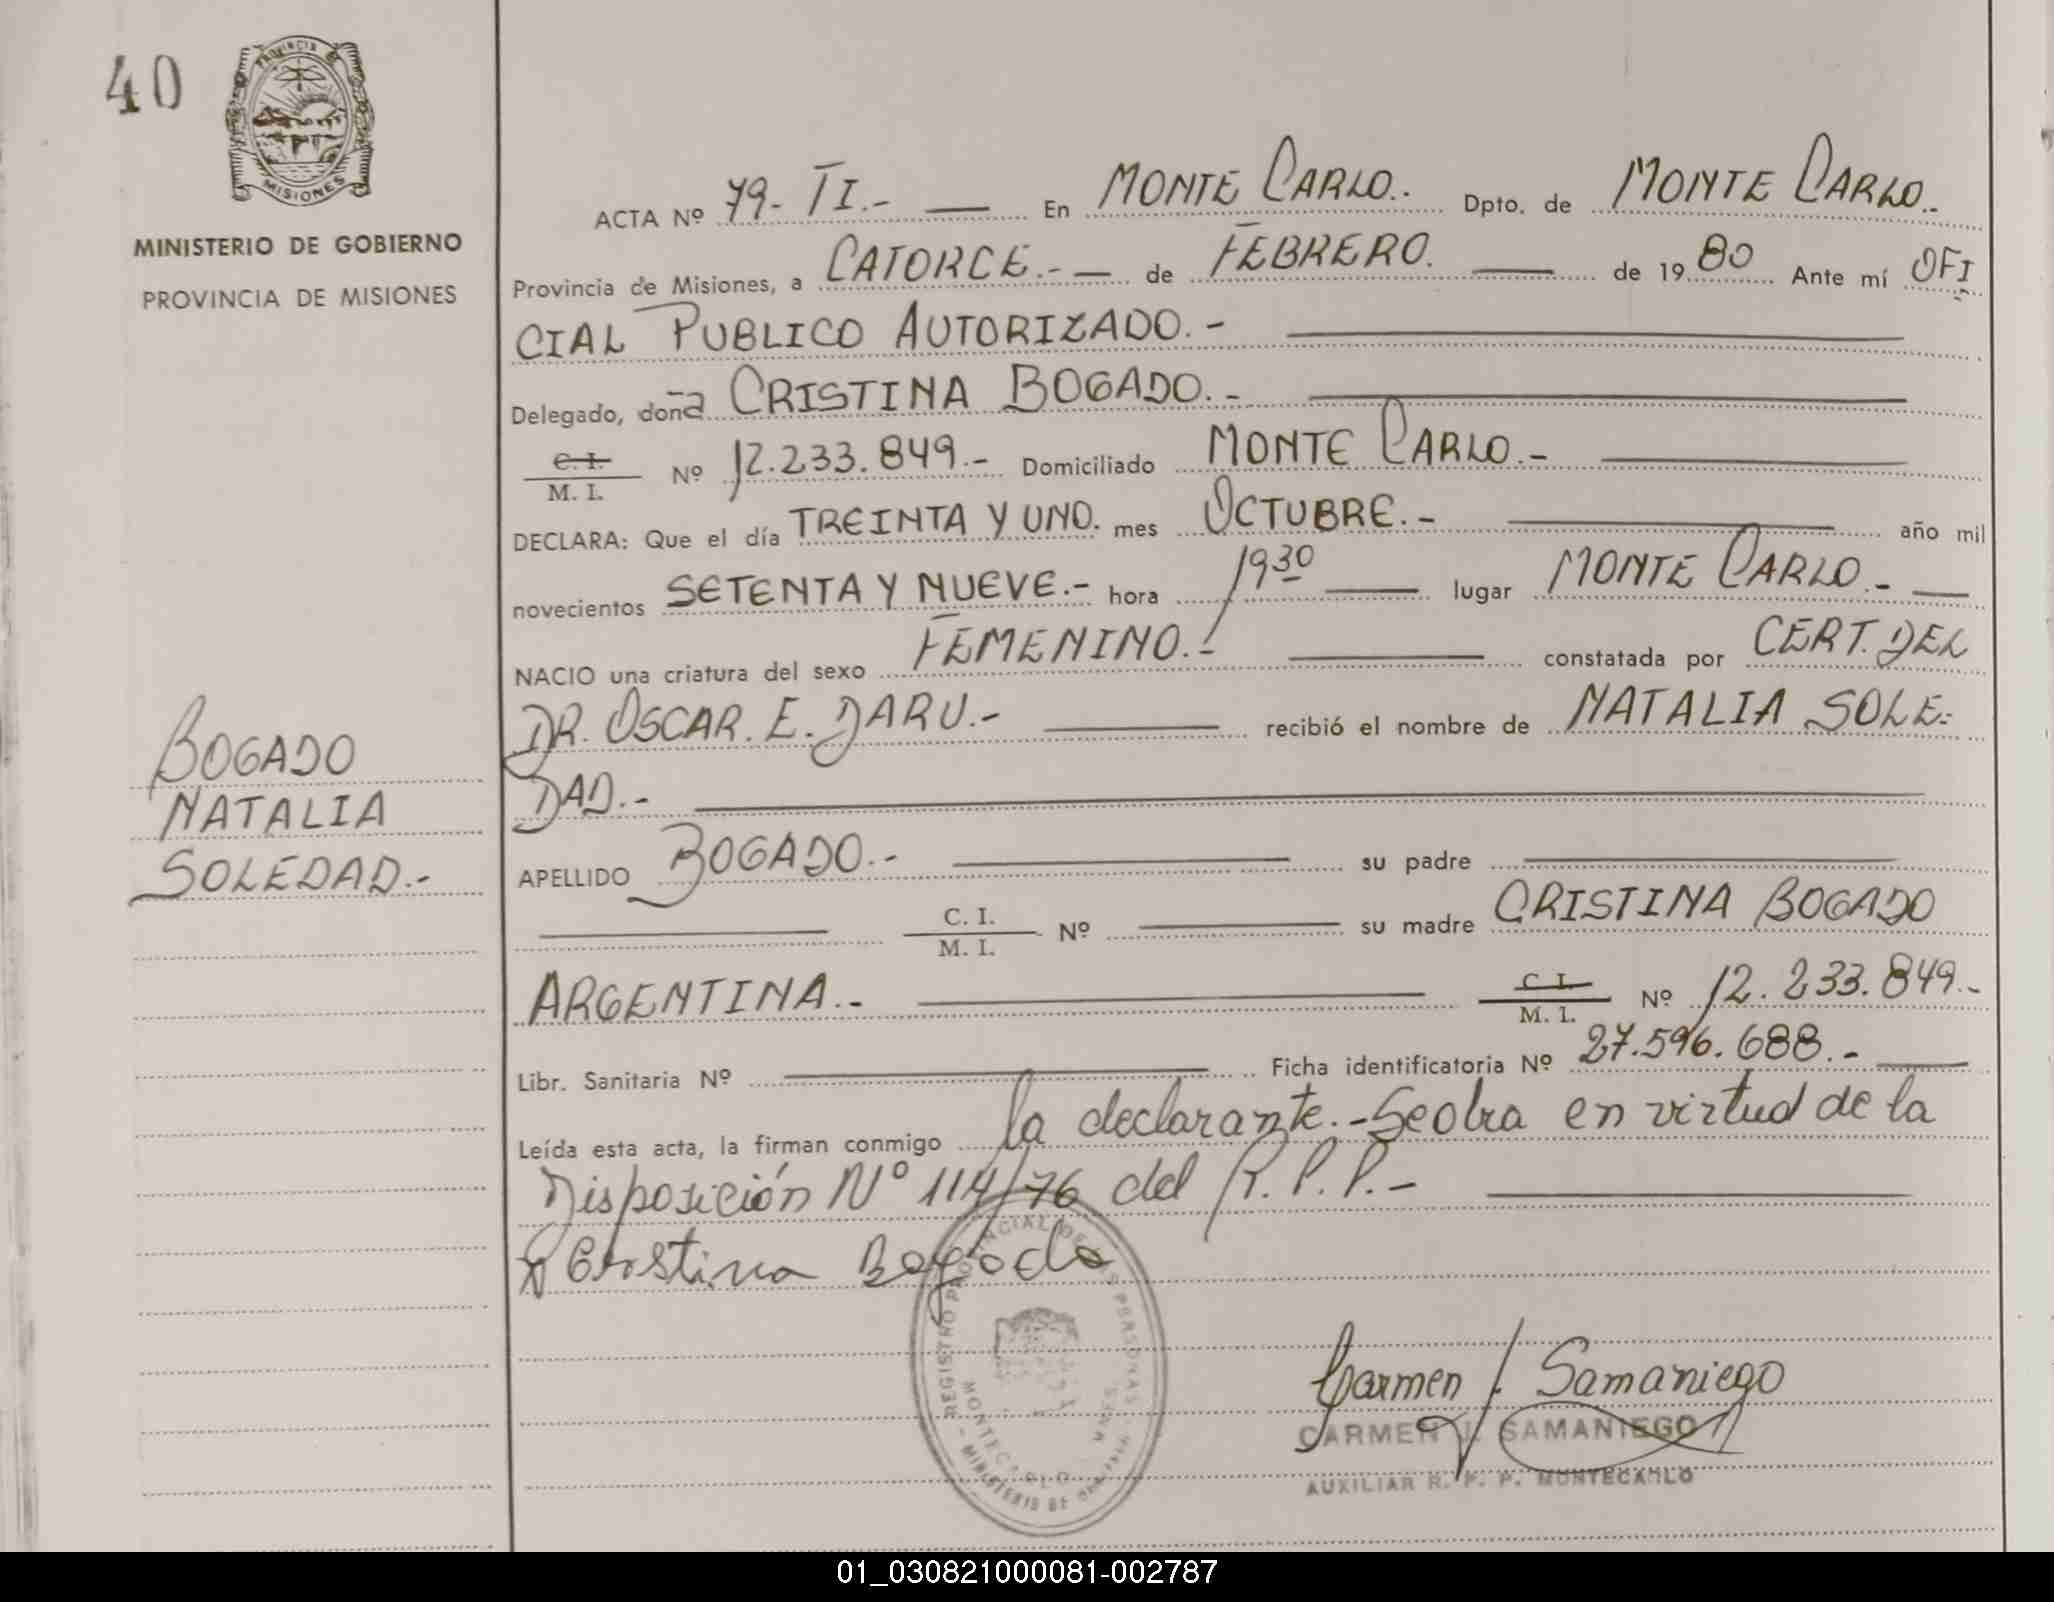 40
PROVINCIA DE
MISIONES
MINISTERIO DE GOBIERNO
PROVINCIA DE MISIONES
BOGADO
NATALIA
SOLEDAD.-
ACTA Nº 79- TI.- En MONTE CARLO.- Dpto. de MONTE CARLO.-
Provincia de Misiones, a CATORCE.- de FEBRERO. de 1980 Ante mí OFI
CIAL PUBLICO AUTORIZADO.-
Delegado, doña CRISTINA BOGADO.-
C. I.
M. I. Nº 12.233.849.- Domiciliado MONTE CARLO.-
DECLARA: Que el día TREINTA Y UNO. mes OCTUBRE.- año mil
novecientos SETENTA Y NUEVE.- hora 1930 lugar MONTE CARLO.-
NACIO una criatura del sexo FEMENINO.- constatada por CERT. DEL
DR. OSCAR. E. DARU.- recibió el nombre de NATALIA SOLE-
DAD.-
APELLIDO BOGADO.- su padre
C. I.
M. I. Nº su madre CRISTINA BOGADO
ARGENTINA.- C. I.
M. I. Nº 12.233.849.-
Libr. Sanitaria Nº Ficha identificatoria Nº 27.596.688.-
Leída esta acta, la firman conmigo la declarante.- Se obra en virtud de la
Disposición Nº 114/76 del R.P.P.-
x Cristina Bogado
REGISTRO PROVINCIAL DE LAS PERSONAS
MONTECARLO - MNES.
MINISTERIO DE
Carmen J. Samaniego
CARMEN J. SAMANIEGO
AUXILIAR R. P. P. MONTECARLO
01_030821000081-002787